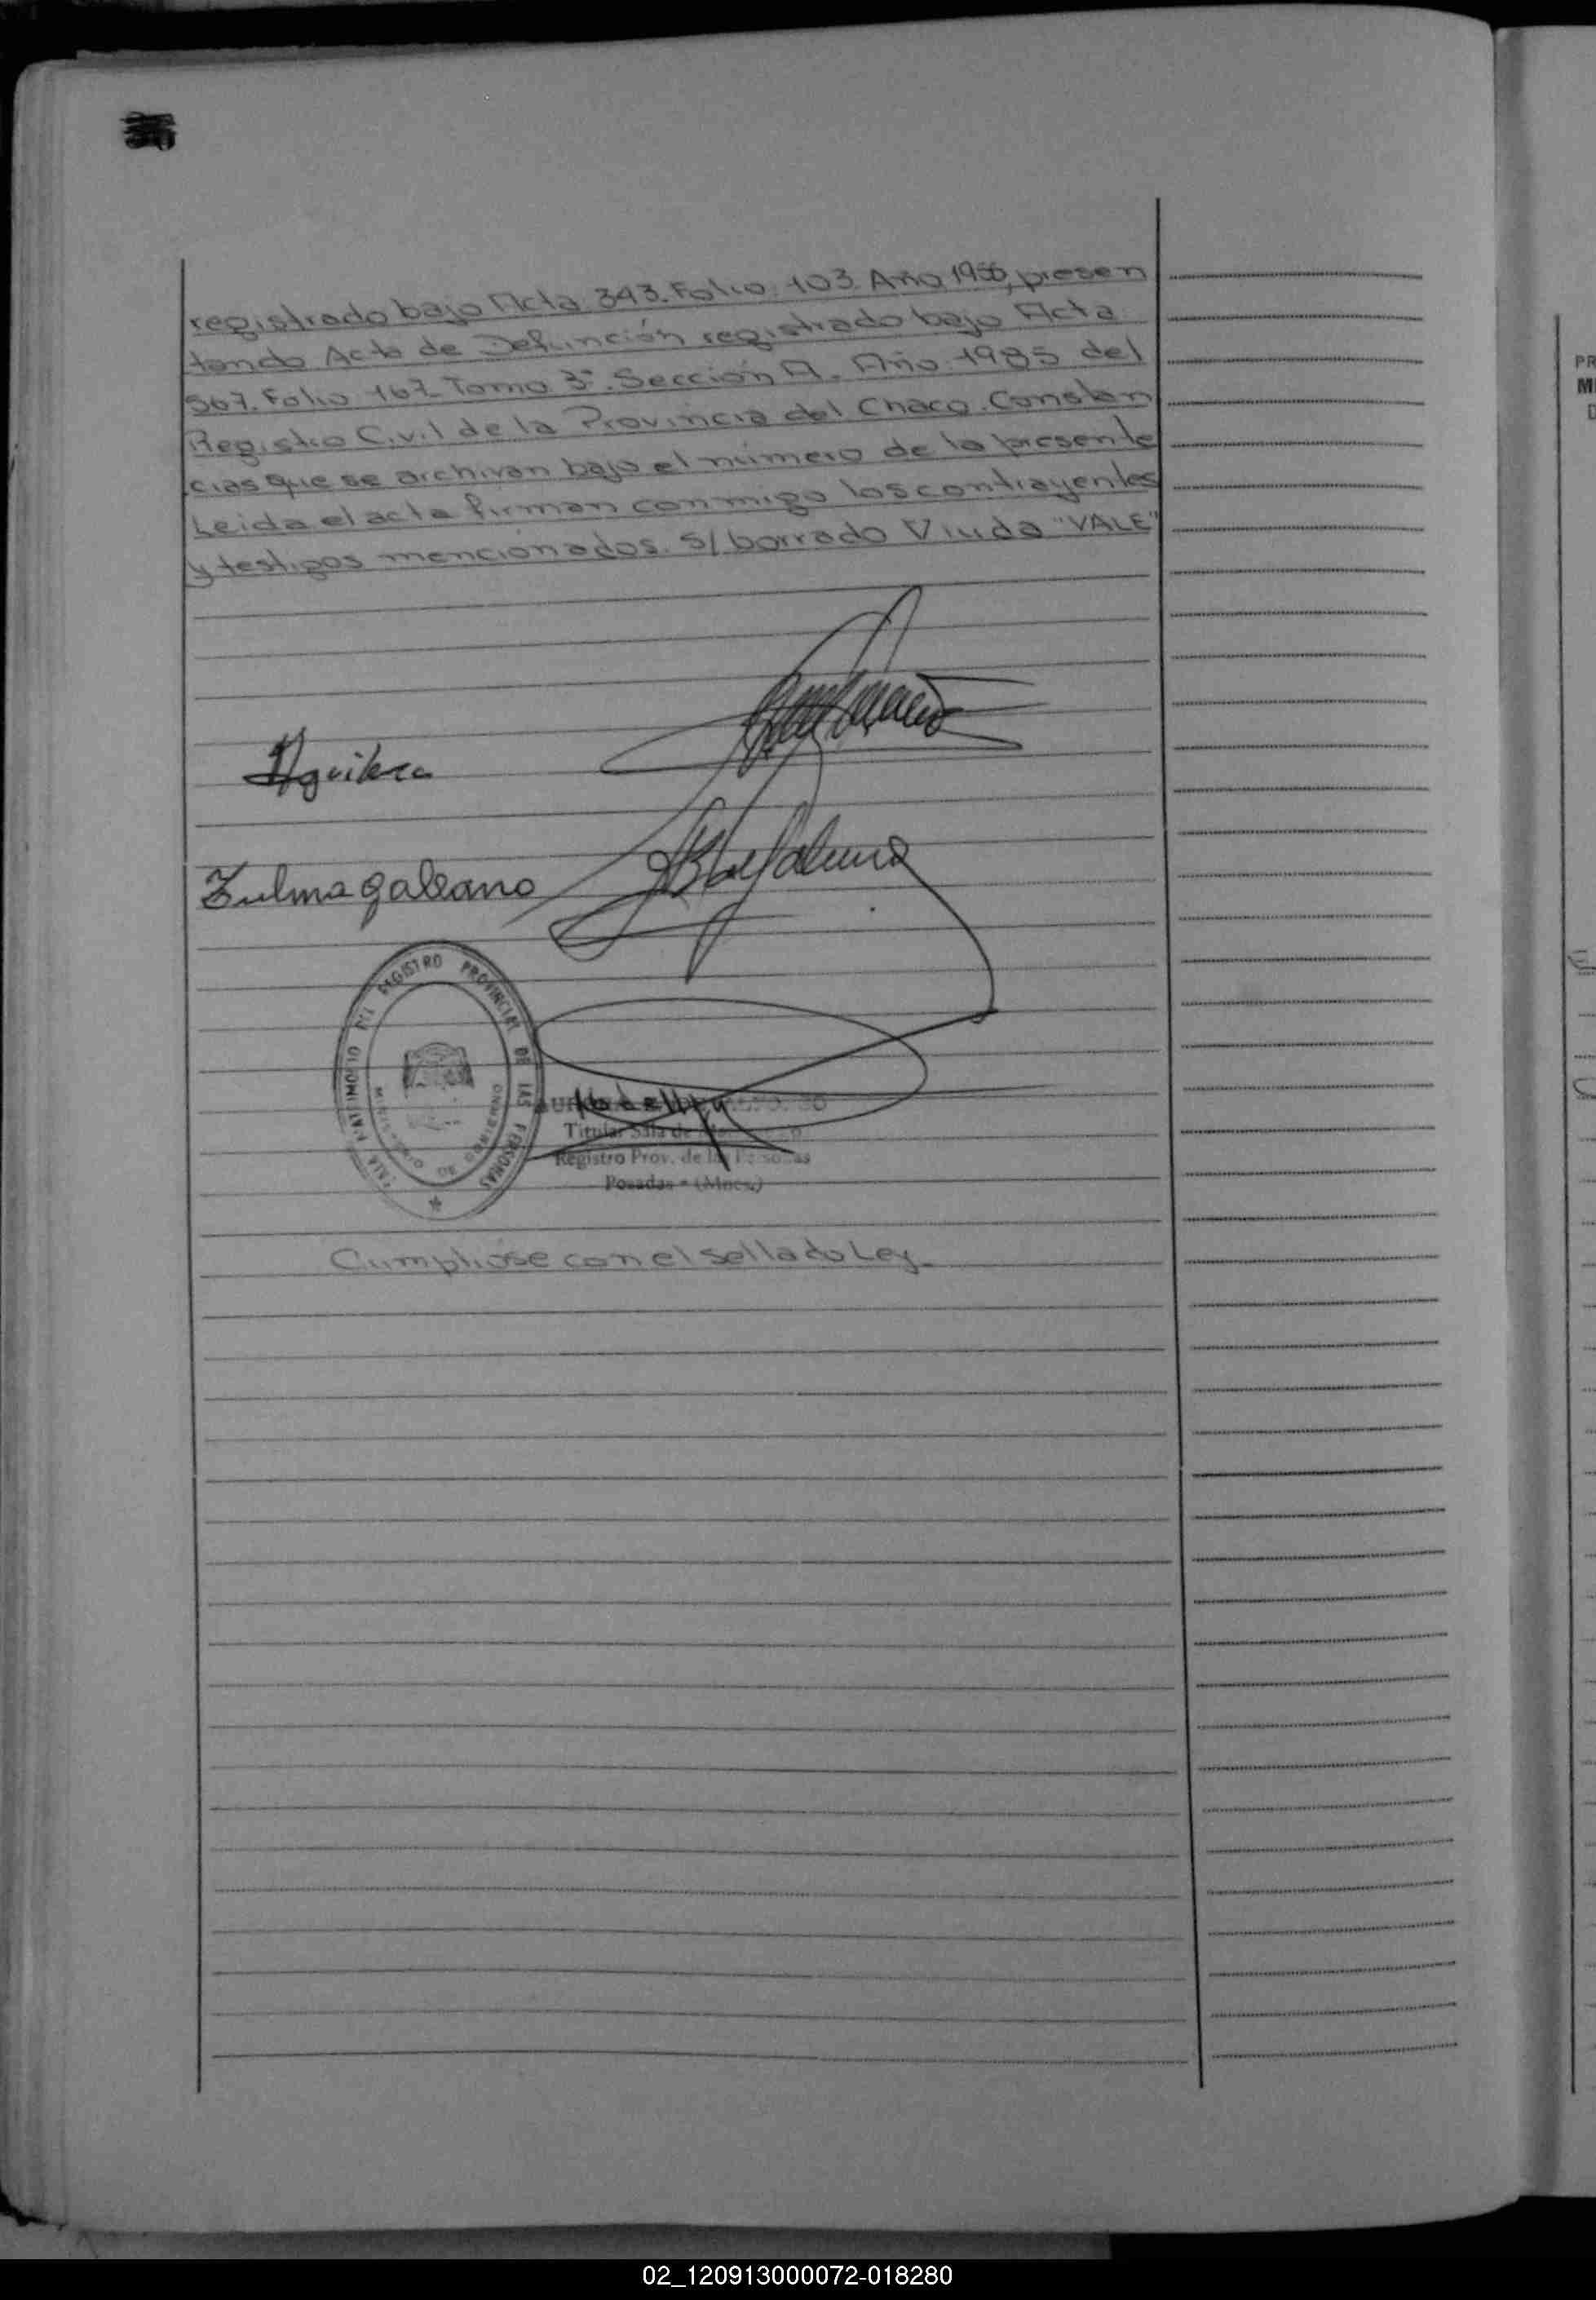 registrado bajo Acta: 343. Folio: 103. Año 1956, presen
tando Acta de Defunción registrado bajo Acta
567. Folio 167. Tomo 3º. Sección A. Año: 1985 del
Registro Civil de la Provincia del Chaco. Constan
cias que se archivan bajo el número de la presente
Leida el acta firman conmigo los contrayentes
y testigos mencionados. S/ borrado Viuda "VALE"
Aguilera
Zulma galeano
DEL REGISTRO PROVINCIAL DE LAS PERSONAS
Titular Sala de
Registro Prov. de las Personas
Posadas - (Mnes.)
Cumpliose con el sellado Ley.
PR
M
D
02_120913000072-018280